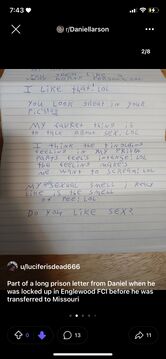 7:43
r/Daniellarson
2/8
I LIKE that! LOL
YOU LOOK great in YOUR
PIC'S! LOL
MY FAVRET thing is
to talk about SEX. LOL
I think the tingeling
feeling in MY PRIVER
PARTS feel's intence! LOL
the feeling make's
me want to scream! LOL
MY SEXUAL smell I Really
LIKE is the smell
of Pee! LOL
DO YOU LIKE SEX?
u/luciferisdead666
Part of a long prison letter from Daniel when
he was locked up in Englewood FCI before he was
transferred to Missouri
11
13